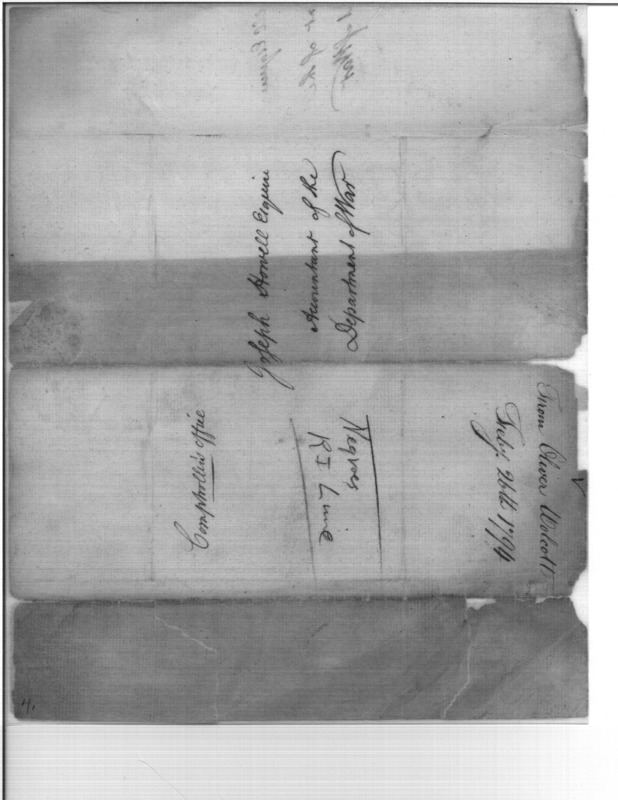 Joseph Howell Esquire
Accountant of the
Department of War
Comptrollers Office
Negroes
R I Line
From Oliver Wolcott
Feby. 26th 1794
4.